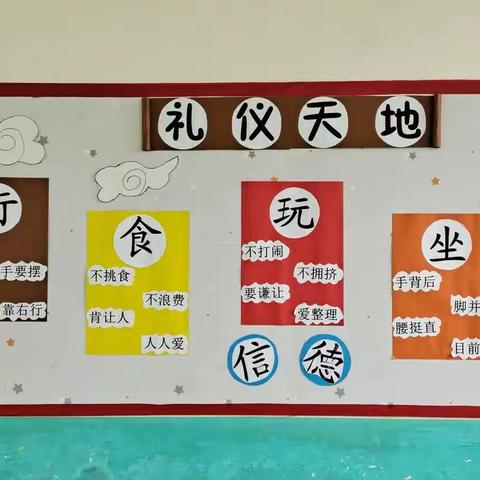 礼仪天地
行
手要摆
靠右行
食
不挑食
不浪费
肯让人
人人爱
玩
不打闹
不拥挤
要谦让
爱整理
坐
手背后
脚并
腰挺直
目前
信
德